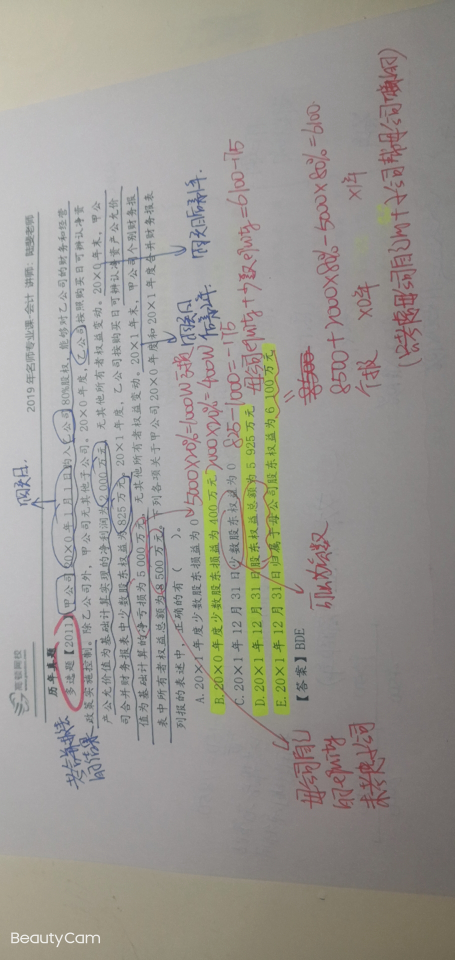 高顿网校
2019年名师专业课-会计 讲师：
历年真题
购买日.
多选题【2011】甲公司20×0年1月1日购入乙公司80%股权，能够对乙公司的财务和经营
政策实施控制。除乙公司外，甲公司无其他子公司。20×0年度，乙公司按照购买日可辨认净资
产公允价值为基础计算实现的净利润为2 000万元，无其他所有者权益变动。20×0年末，甲公
司合并财务报表中少数股东权益为825万元。20×1年度，乙公司按购买日可辨认净资产公允价
值为基础计算的净亏损为5 000万元，无其他所有者权益变动。20×1年末，甲公司个别财务报
表中所有者权益总额为8 500万元。下列各项关于甲公司20×0年度和20×1年度合并财务报表
列报的表述中，正确的有（ ）。
A. 20×1年度少数股东损益为0
5000×20%=1000W
B. 20×0年度少数股东损益为400万元
2000×20%=400W
C. 20×1年12月31日少数股东权益为0
825-1000=-175
D. 20×1年12月31日股东权益总额为5 925万元
母公司equity+少数equity=6100-175
E. 20×1年12月31日归属于母公司股东权益为6 100万元
【答案】BDE
8500+2000×80%-5000×80%=6100
×0年
×1年
母公司自己
的equity